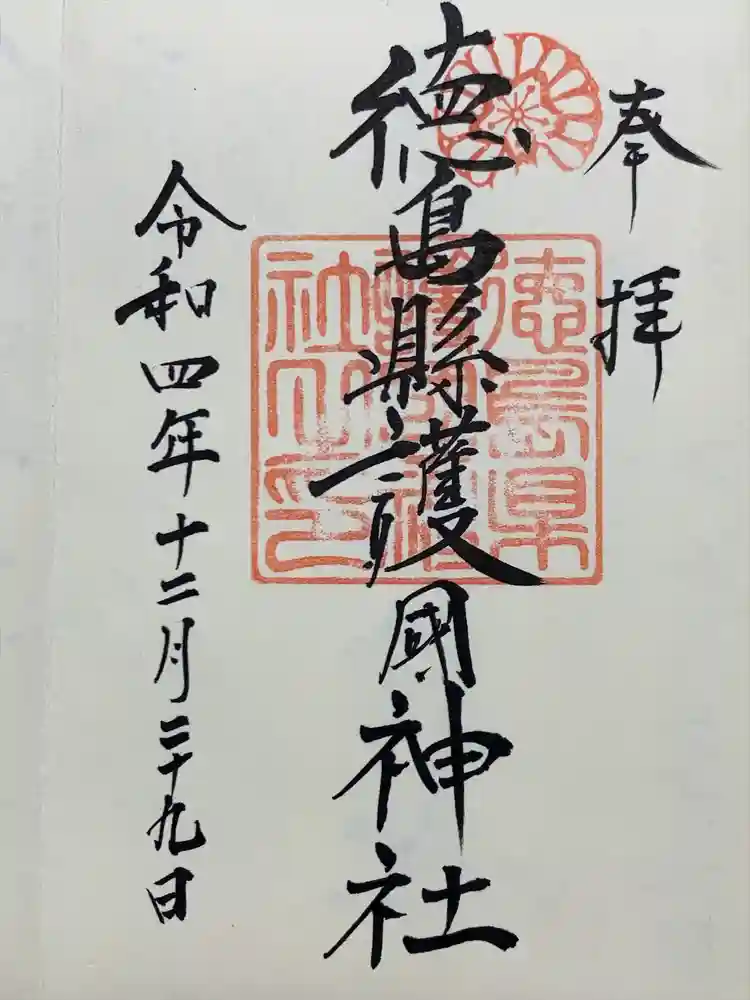 奉拝
徳島縣護國神社
徳島県護國神社之印
令和四年十二月二十九日